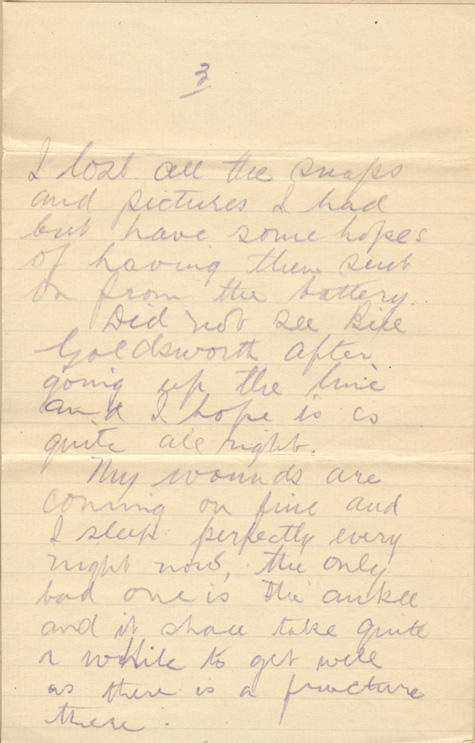 3
I lost all the snaps
and pictures I had
but have some hopes
of having them sent
on from the battery.
Did not see Bill
Goldsworth after
going up the line
and I hope is is
quite all right.
My wounds are
coming on fine and
I sleep perfectly every
night now, the only
bad one is the ankle
and it shall take quite
a while to get well
as there is a fracture
there.